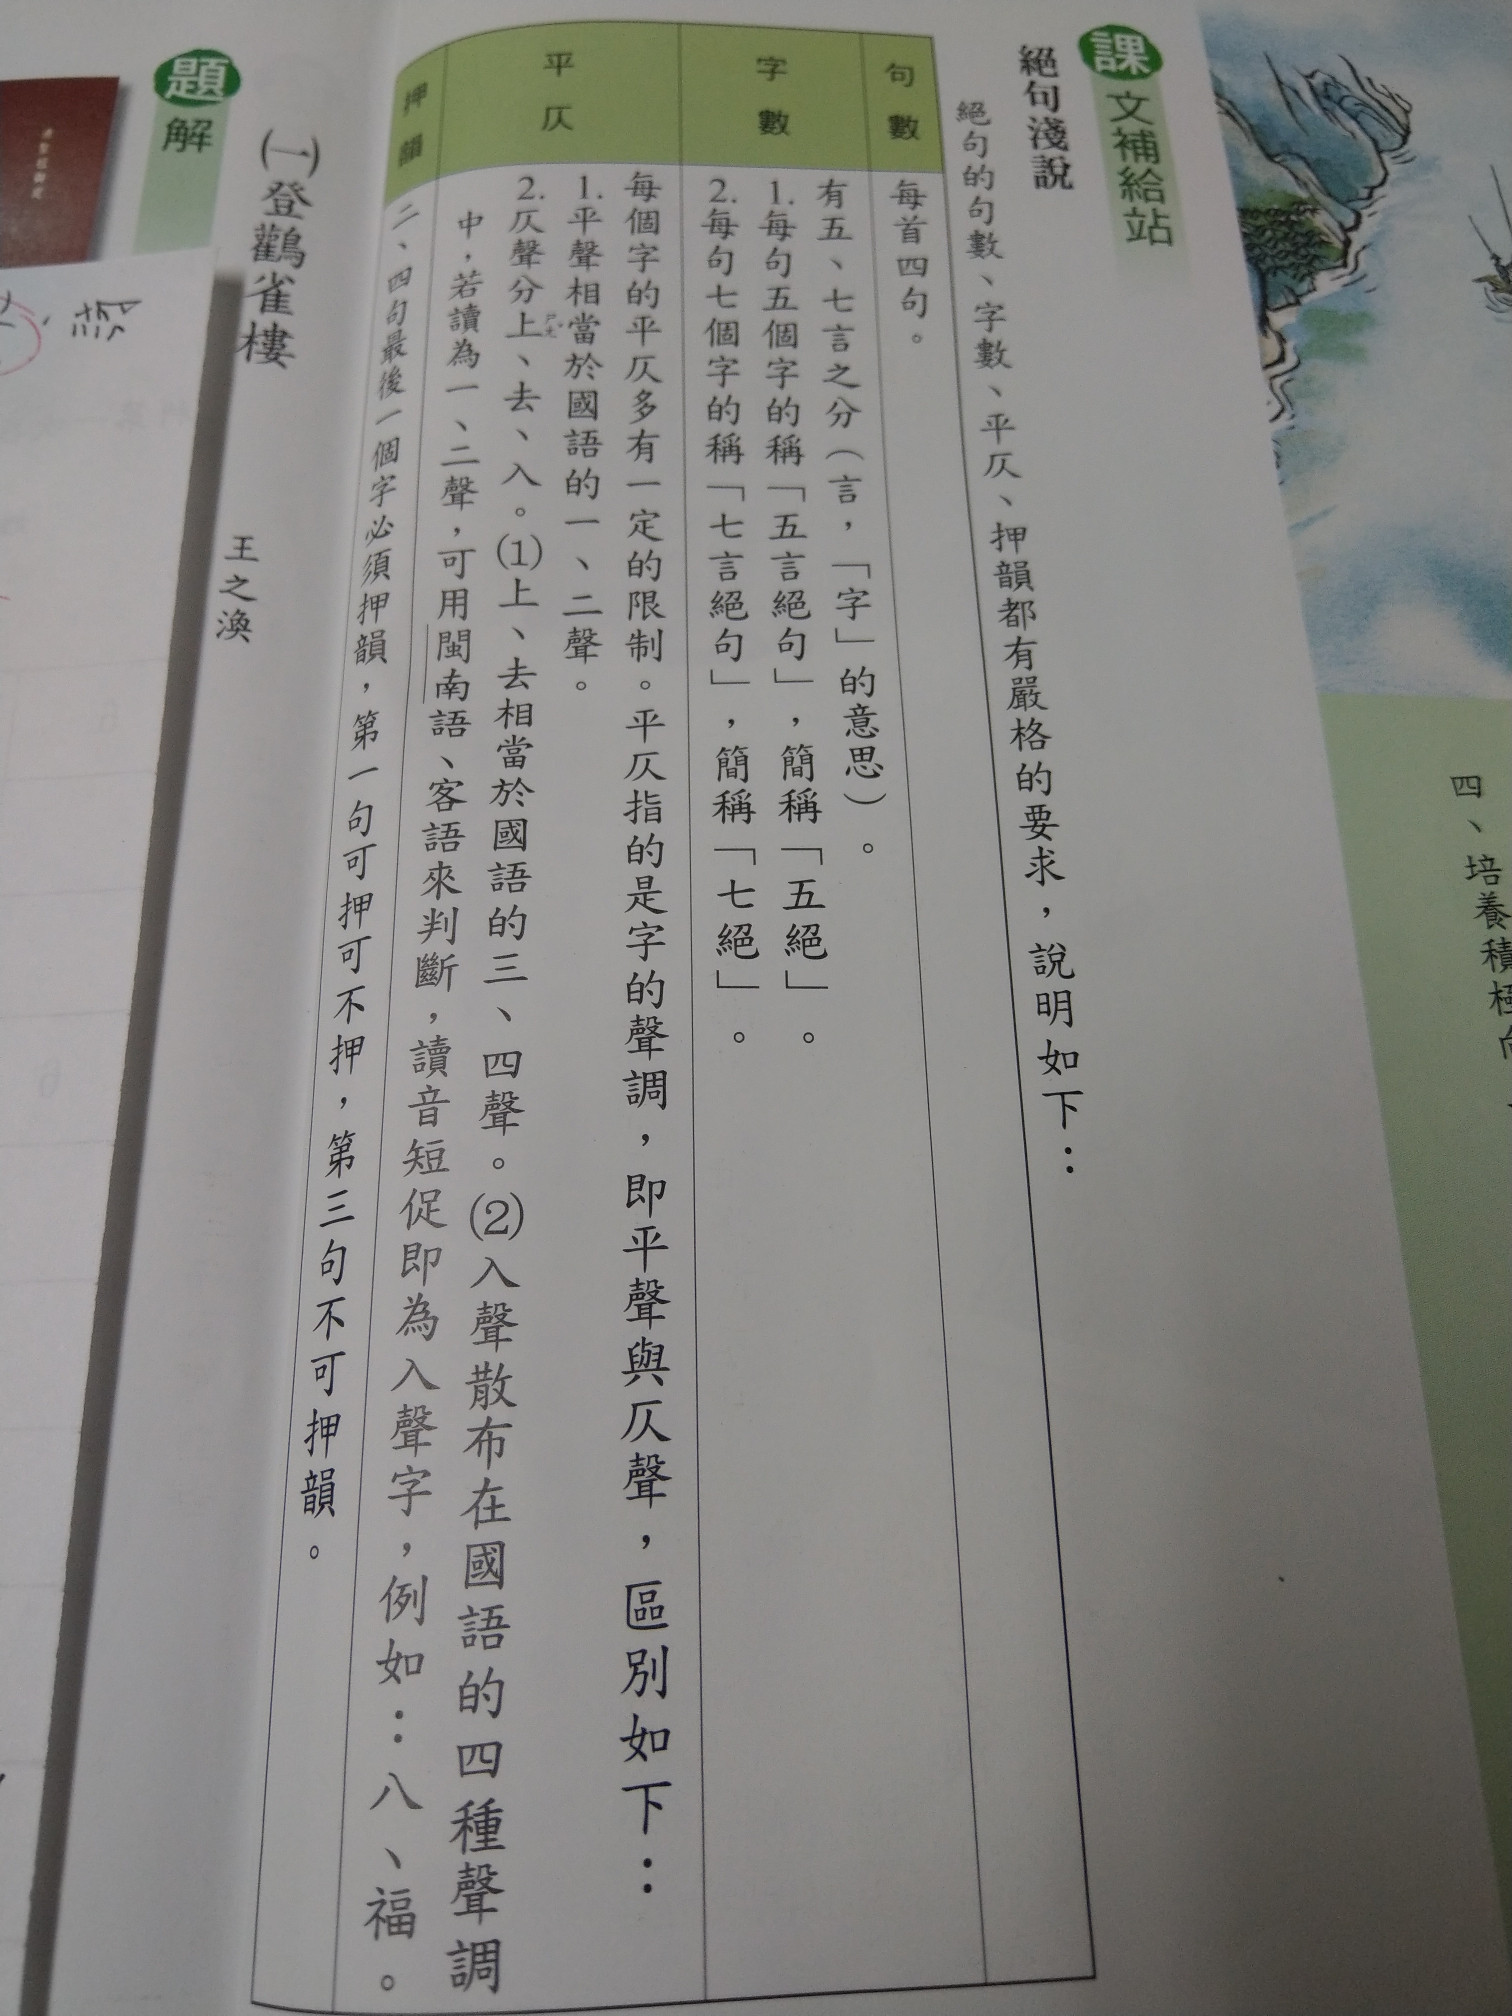 四、培養積極向
課文補給站
絕句淺說
絕句的句數、字數、平仄、押韻都有嚴格的要求，說明如下：
句數
每首四句。
字數
有五、七言之分（言，「字」的意思）。
1.每句五個字的稱「五言絕句」，簡稱「五絕」。
2.每句七個字的稱「七言絕句」，簡稱「七絕」。
平仄
每個字的平仄多有一定的限制。平仄指的是字的聲調，即平聲與仄聲，區別如下：
1.平聲相當於國語的一、二聲。
2.仄聲分上、去、入。(1)上、去相當於國語的三、四聲。(2)入聲散布在國語的四種聲調
ㄕㄤˇ
中，若讀為一、二聲，可用閩南語、客語來判斷，讀音短促即為入聲字，例如：八、福。
押韻
二、四句最後一個字必須押韻，第一句可押可不押，第三句不可押韻。
題解
(一)登鸛雀樓
王之渙